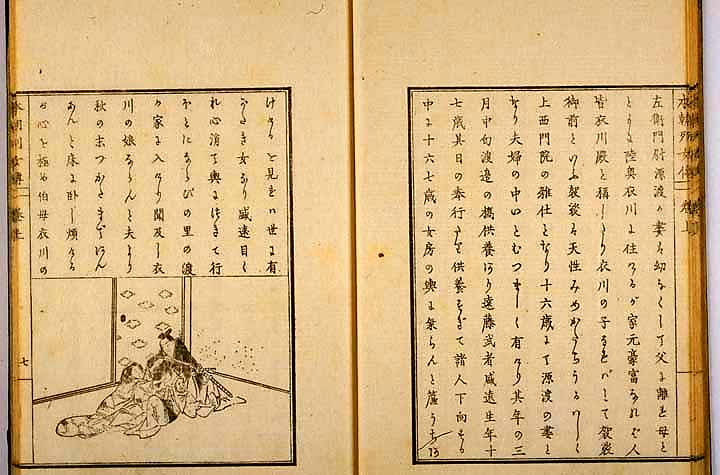 左衛門尉源渡が妻は幼なくして父に離れ母と
ともに陸奥衣川に住けるが家元豪富なれば人
皆衣川殿と稱しけり衣川の子なればとて袈裟
御前といふ袈裟は天性みめかたちうるはしく
上西門院の雑仕となり十六歳にて源渡の妻と
なり夫婦の中いとむつましく有けり其年の三
月中旬渡邉の橋供養あり遠藤武者盛遠生年十
七歳其日の奉行にて供養て諸人下向する
中に十六七歳の女房の輿に乗らんと簾うち
けるを見るに世に有
がたき女なり盛遠目く
れ心消て輿につきて行
ほどにならびの里の渡
が家に入けり聞及し衣
川の娘ならんと夫より
秋の末つかたまで
と床に臥し煩ける
が心を極め伯母衣川の
本朝列女傳 巻上
七